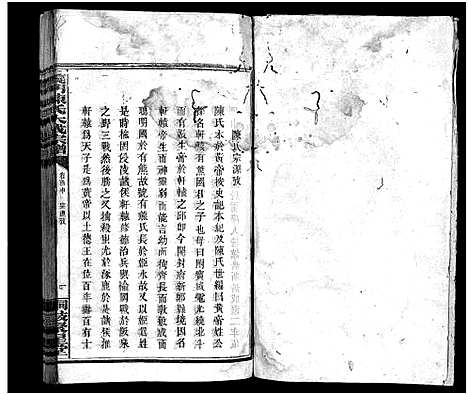 陳氏宗源攷
陳氏本於黃帝按史記本紀及陳氏世編曰黃帝姓公
孫名軒轅有熊國君之子也母曰附寶感電光繞北斗
而有娠生帝於軒轅之邱即今開封新鄭縣境因名
軒轅帝生而神靈弱而能言幼而齊長而敦敏成而
聰明國於有熊故號有熊氏長於姬水故又以姬為姓
是時榆罔侵陵諸侯軒轅修德治兵與榆罔戰於阪泉
之野三戰然後勝之又殺蚩尤於涿鹿於是諸侯推
軒轅為天子是為黃帝以土德王在位百年壽百有十
義門陳氏大成宗譜
卷首中 宗源攷